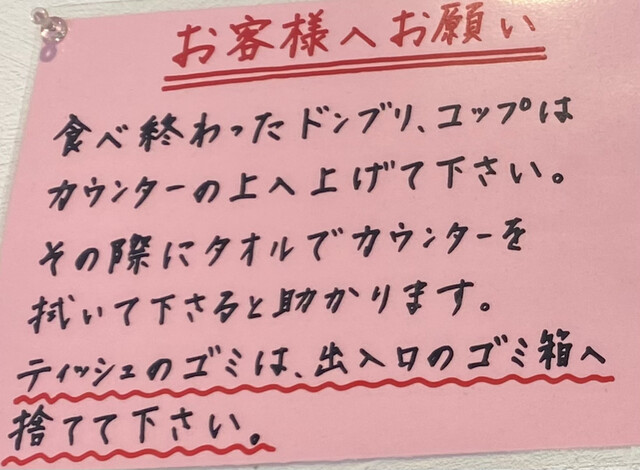 お客様へお願い
食べ終わったドンブリ、コップは
カウンターの上へ上げて下さい。
その際にタオルでカウンターを
拭いて下さると助かります。
ティッシュのゴミは、出入口のゴミ箱へ
捨てて下さい。